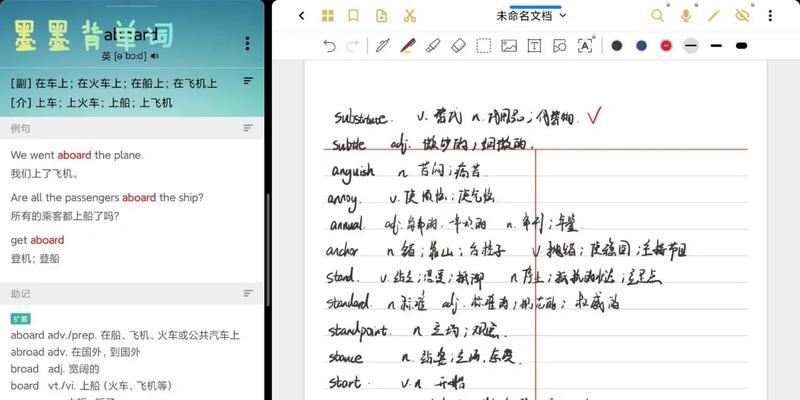 墨墨背单词
aboard
英 [ə'bɔːd]
[副] 在车上；在火车上；在船上；在飞机上
[介] 上车；上火车；上船；上飞机
例句
We went aboard the plane.
我们上了飞机。
Are all the passengers aboard the ship?
所有的乘客都上船了吗？
get aboard
登机；登船
助记
扩展
aboard adv./prep. 在船、飞机、火车或公共汽车上
abroad adv. 在国外，到国外
broad adj. 宽阔的
board vt./vi. 上船（火车、飞机等）
未命名文档
substitute. v. 替代 n. 代用品；代替物.
subtle adj. 微妙的；细微的.
anguish n 苦闷；痛苦
annoy. v. 使烦恼；使气恼
annual. adj. 每年的，一年的 n. 年刊；年鉴
anchor n 锚；靠山；台柱子 v 抛锚；使稳固；主持节目
stand. v. 站立；忍受；抵御 n 停止；立足点
standard. n 标准 adj. 标准的；规范的；权威的
standpoint. n 立场；观点
stance n. 站姿；立场，态度
start v.n 开始